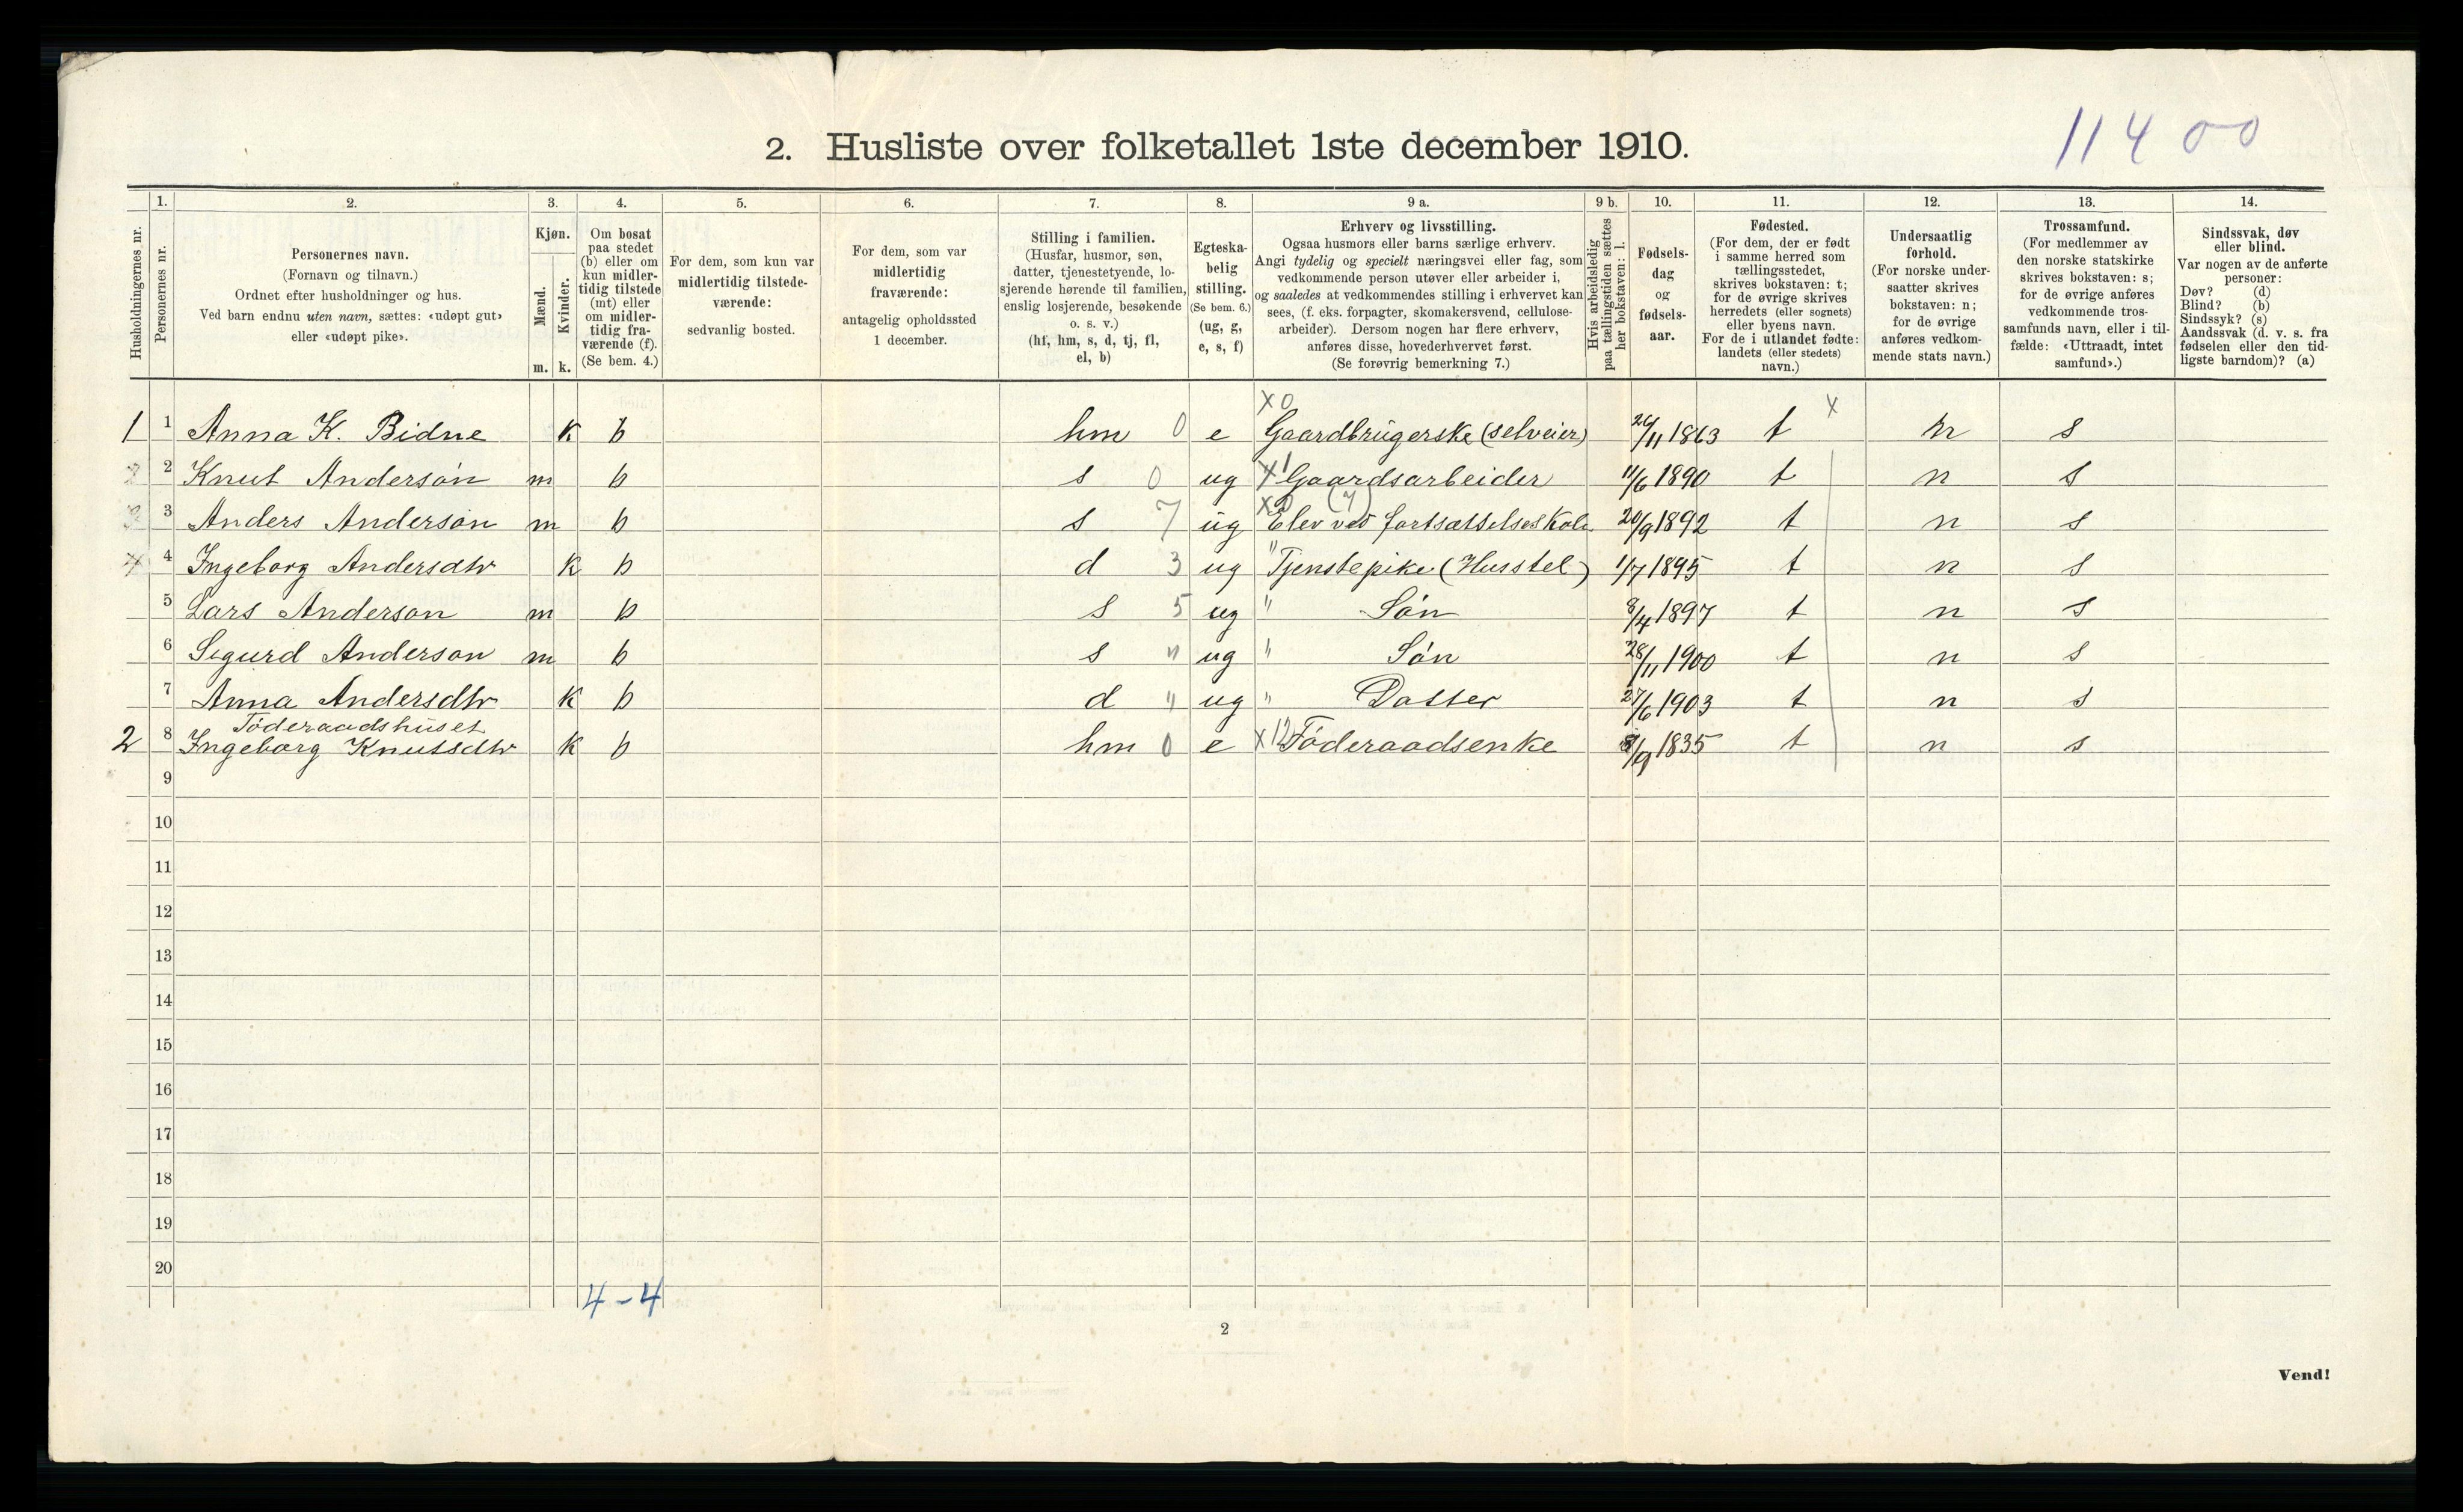 11400
2. Husliste over folketallet 1ste december 1910.
Husholdningernes nr.
1. Personernes nr.
2. Personernes navn.
(Fornavn og tilnavn.)
Ordnet efter husholdninger og hus.
Ved barn endnu uten navn, sættes: «udøpt gut»
eller «udøpt pike».
3. Kjøn.
Mænd. m.
Kvinder. k.
4. Om bosat
paa stedet
(b) eller om
kun midler-
tidig tilstede
(mt) eller
om midler-
tidig fra-
værende (f).
(Se bem. 4.)
5. For dem, som kun var
midlertidig tilstede-
værende:
sedvanlig bosted.
6. For dem, som var
midlertidig
fraværende:
antagelig opholdssted
1 december.
7. Stilling i familien.
(Husfar, husmor, søn,
datter, tjenestetyende, lo-
sjerende hørende til familien,
enslig losjerende, besøkende
o. s. v.)
(hf, hm, s, d, tj, fl,
el, b)
8. Egteska-
belig
stilling.
(Se bem. 6.)
(ug, g,
e, s, f)
9 a. Erhverv og livsstilling.
Ogsaa husmors eller barns særlige erhverv.
Angi tydelig og specielt næringsvei eller fag, som
vedkommende person utøver eller arbeider i,
og saaledes at vedkommendes stilling i erhvervet kan
sees, (f. eks. forpagter, skomakersvend, cellulose-
arbeider). Dersom nogen har flere erhverv,
anføres disse, hovederhvervet først.
(Se forøvrig bemerkning 7.)
9 b. Hvis arbeidsledig
paa tællingstiden sættes
her bokstaven: l.
10. Fødsels-
dag
og
fødsels-
aar.
11. Fødested.
(For dem, der er født
i samme herred som
tællingsstedet,
skrives bokstaven: t;
for de øvrige skrives
herredets (eller sognets)
eller byens navn.
For de i utlandet fødte:
landets (eller stedets)
navn.)
12. Undersaatlig
forhold.
(For norske under-
saatter skrives
bokstaven: n;
for de øvrige
anføres vedkom-
mende stats navn.)
13. Trossamfund.
(For medlemmer av
den norske statskirke
skrives bokstaven: s;
for de øvrige anføres
vedkommende tros-
samfunds navn, eller i til-
fælde: «Uttraadt, intet
samfund».)
14. Sindssvak, døv
eller blind.
Var nogen av de anførte
personer:
Døv? (d)
Blind? (b)
Sindssyk? (s)
Aandssvak (d. v. s. fra
fødselen eller den tid-
ligste barndom)? (a)
1 1 Anna K. Bidne k b hm 0 e x0 Gaardbrugerske (selveier) /11 1863 t x n s
2 Knut Anderson m b s 0 ug x1 Gaardsarbeider 11/6 1890 t n s
3 Anders Anderson m b s 7 ug x0 (7) Elev ved fortsættelsesskole 20/9 1892 t n s
4 4 Ingeborg Andersdtr k b d 3 ug " Tjenstepike (Husstel) 1/7 1895 t n s
5 Lars Anderson m b s 5 ug " Søn 8/4 1897 t n s
6 Sigurd Anderson m b s " ug " Søn 28/11 1900 t n s
7 Anna Andersdtr k b d " ug " Datter 27/6 1903 t n s
Føderaadshuset
2 8 Ingeborg Knutsdtr k b hm 0 e x12 Føderaadsenke /9 1835 t n s
9
10
11
12
13
14
15
16
17
18
19
20
4-4
2
Vend!